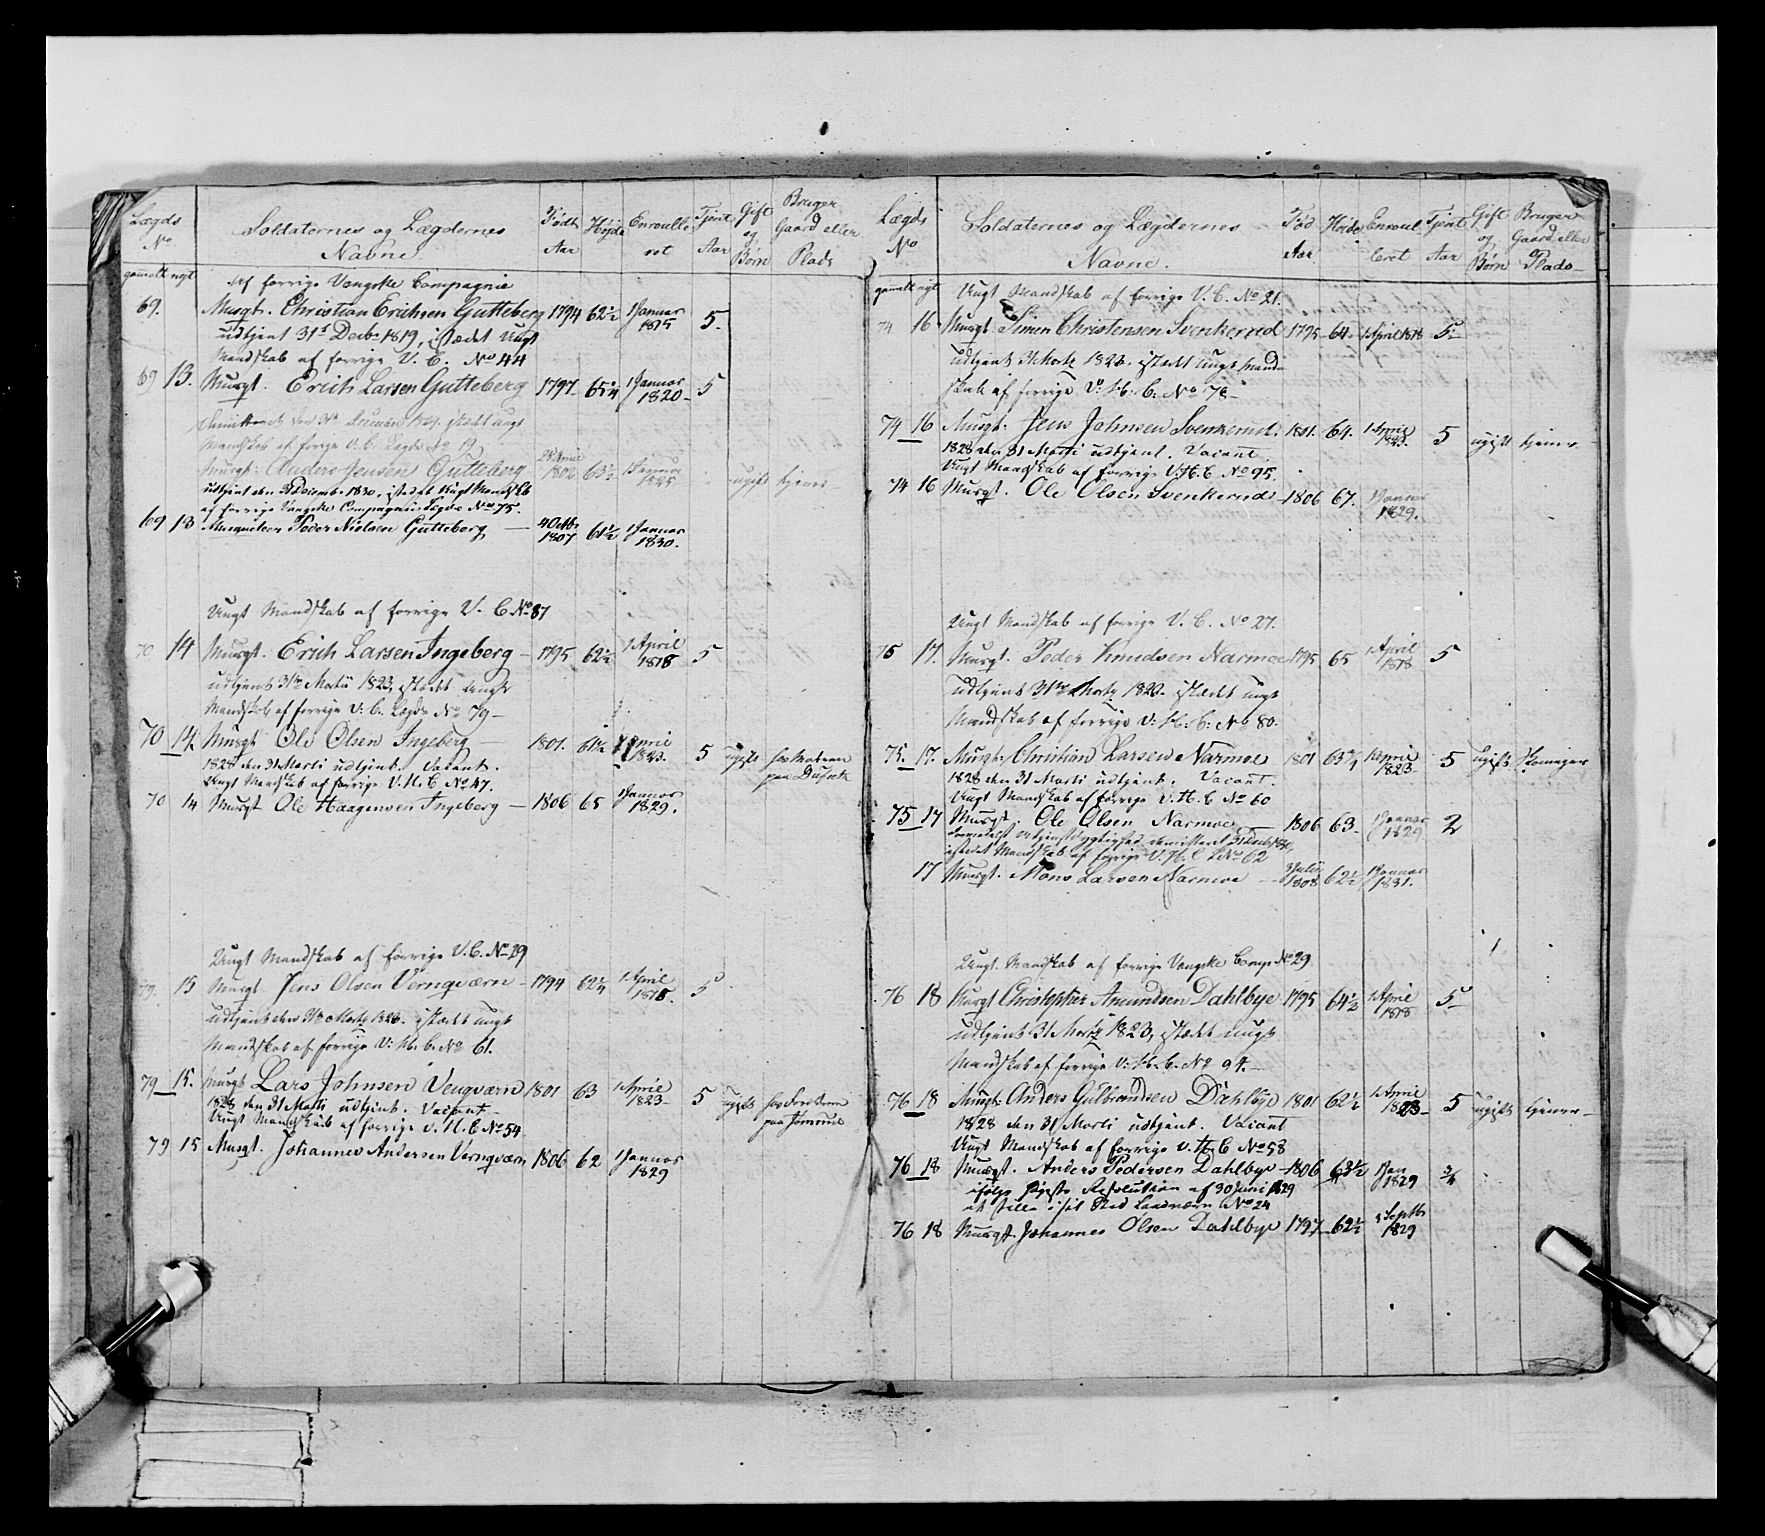 Lægds No
Soldaternes og Lægdernes Navne
Født Aar
Høide
Enroulle ret
Tjent Aar
Gift og Børn
Bruger Gaard eller Plads
gamelt nyt
Af forrige Vangske Compagnie
69. Musqt. Christian Erichsen Gutteberg 1794 62½ 1 Januar 1815 5
udtjent 31t Decbr 1819, istædet Ungt
Mandskab af forrige V. C. No 44
69 13. Musqt. Erich Larsen Gutteberg 1797 65¾ 1 Januar 1820 5
Mandskab af forige V. C. Lægds No 19
Musqt: Anders Jensen Gutteberg 1802 63½ 1 Januar 1825 ugift tjener
udtjent den 31 Decembr 1830, istedet Ungt Mandskb
af forrige Vangske Compagnie Lægds No 75.
69 13 Musquiteer Peder Nielsen Gutteberg 4 Octbr 1807 61½ 1 Januar 1830.
Ungt Mandskab af forrige V. C No 87
70 14 Musqt. Erich Larsen Ingeberg 1795 62½ 1 April 1818 5
udtjent 31te Martii 1823, istædet Ungt
Mandskab af forrige V: C. Lægds No 79
70 14. Musqt Ole Olsen Ingeberg 1801. 61½ 1 April 1823. 5 ugift
1828 den 31 Marti udtjent. Vacant.
Ungt Mandskab af forrige V. H. C No 47.
70 14 Musqt Ole Haagensen Ingeberg 1806 65 1 Januar 1829.
Ungt Mandskab af forrige V. C. No 29
79. 15 Musqt. Jens Olsen Vernqværn 1794 62¼ 1 April 1818. 5
udtjent den 31te Martz 1823. istædet ungt
Mandskab af forrige V: H. C. No 61.
79 15. Musqt Lars Johnsen Vengværn 1801 63 1 April 1823 5 ugift
1828 den 31 Marti udtjent. Vacant
Ungt Mandskab af forrige V. H. C No 54
79 15 Musqt. Johannes Andersen Vernqværn 1806 62 1 Januar 1829
Lægds No
Soldaternes og Lægdernes Navne.
Fød Aar
Høide
Enroul leret
Tjent Aar
Gift og Børn
Bruger Gaard eller Plads
gamelt nyt
Ungt Mandskab af forrige V. C. No 21.
74 16 Musqt. Simen Christensen Svenkerud 1795 64. 1 April 1818 5
udtjent 31 Martz 1823. istædet ungt Mand-
skab af forrige V: H: C: No 78
74 16 Musqt: Jens Johnsen Svenkerud 1801. 64. 1 April 1823. 5 ugift tjener
1828 den 31 Marti udtjent. Vacant
Ungt Mandskab af forrige V. H. C No 95.
74 16 Musqt. Ole Olsen Svenkerud 1806 67. 1 Januar 1829.
Ungt Mandskab af forrige V. C. No 27.
75 17. Musqt. Peder Knudsen Narmoe 1795 65 1 April 1818 5
udtjent 31te Martz 1823. istædet ungt
Mandskab af forrige V: H: C: No 80.
75. 17. Musqt. Christian Larsen Narmoe 1801 63¾ 1 April 1823 5 ugift
1828 den 31 Marti udtjent. Vacant.
Ungt Mandskab af forrige V. H. C No 60
75 17 Musqt. Ole Olsen Narmoe 1806 63 1 Januar 1829 2
istedet Mandskab af forrige V. H. C LNo 62
17 Musqt. Mons Larsen Narmoe 3 Julii 1808 62½ 1 Januar 1831.
Ungt. Mandskab af forrige Vangske Comp No 29
76 18 Musqt Christopher Amundsen Dahlbye 1795 64½ 1 April 1818 5
udtjent 31 Martz 1823, istædet ungt
Mandskab af forrige V: H. C. No 94.
76 18 Musqt: Anders Gulbrandsen Dahlbye 1801 62½ 1 April 1823 5 ugift tjener
1828 den 31 Marti udtjent. Vacant
Ungt Mandskab af forrige V. H. C No 58
76 18 Musqt. Anders Pedersen Dahlbye 1806 63½ 1 Jan 1829 ¾
ifølge høieste Resolution af 30 Juni 1829
76 18 Musqt. Johannes Olsen Dahlbye 1797 62½ 1 Septbr 1829